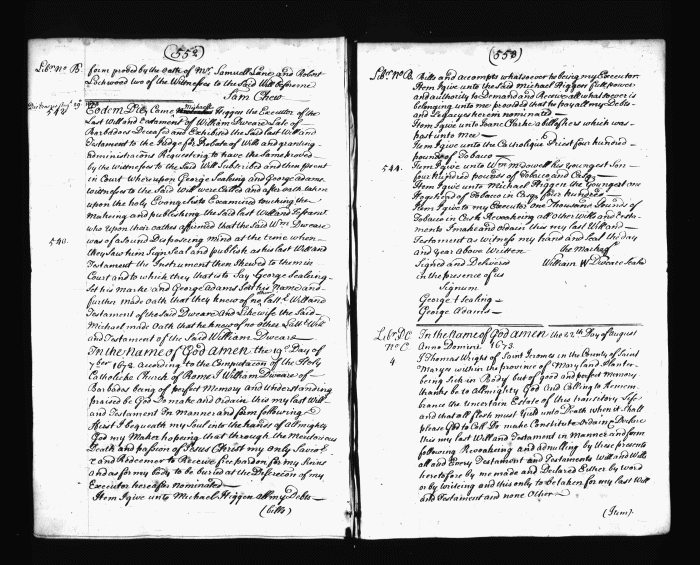 (552)
Lib.r No. B.
form proved by the oath of Mr. Samuell Lane, and Robert
Lockwood two of the Witnesses to the Said Will before me
Sam Chew
542
Eod.m Die, Came Michael Higgen the Executor of the
Last Will and testament of William Dweare Late of
Barbados Deceased and Exhibited the Said last Will and
Testament to the Judge for Probate of Will and granting
administracons Requesting to have the Same proved
by the Witnesses to the Said Will Subscribed and then present
in Court Whereupon George Sealing and George Adams
Witnesses to the Said Will were Called and after oath taken
upon the holy Evangelists Examined touching the
Makeing and publishing the Said last Will and Testam.t
who upon their oathes affirmed that the Said Wm. Dweare
540.
was of a Sound Disposeing mind at the time when
they Saw him Sign Seal and publish as his last Will and
Testament the Instrument then Shewed to them in
Court and to which they that is to Say George Sealing
Set his marke and George Adams Set his Name and
further made Oath that they knew of no Latt.r Will and
Testament of the Said Dweare and Likewise the Said
Michael made Oath that he knew of no other Latt.r Will
and Testament of the Said William Dweare
In the name of God Amen the 19.th Day of
7ber 1673. According to the Computacon of the Holy
Catholicke Church of Rome I William Dweare of
Barbados being of perfect Memory and Understanding
praised be God Do make and Ordain this my last Will
and Testament In Manner and form following
First I bequeath my Soul into the hands of Almighty
God my Maker hopeing that through the Meritorious
Death and passion of Jesus Christ my only Saviour
and Redeemer to Receive free pardon for my Sins
and as for my body to be buried at the Discrecon of my
Executor hereafter nominated
Item I give unto Michael Higgen all my Debts
(bills)
(553)
Lib.r No. B.
Bills and accompts whatsoever he being my Executor
Item I give unto the Said Michael Higgens full power
and authority to Demand and Receive all whatsoever is
belonging unto me provided that he pay all my Debts
and Legacyes herein nominated
Item I give unto Isaac Clarke a bill of his which was
past unto mee
Item I give unto the Catholique Priest four hundred
pounds of Tobacco
544.
Item I give unto Wm. Mdowell his youngest Son
four hundred pounds of Tobacco and Casq
Item I give unto Michael Higgen the Youngest one
Hogshead of Tobacco in Casq four hundred
Item I give to my Executor One Thousand Pounds of
Tobacco in Cask Revoaking all other wills and Testa-
ments I make and ordain this my last Will and
Testament as witness my hand and Seal the day
and year Above Written
the Mark of
Signed and Delivered
William W Dweare Seale
in the presence of us
Signum
George + Sealing
George Adams
Lib.r D.C.
No. C.
4
In the name of God Amen the 22th Day of August
Anno Domini 1673.
I Thomas Wright of Saint Jeromes in the County of Saint
Marys within the province of Maryland Planter
being Sick in Body but of good and perfect Memory
thanks be to Almighty God and Calling to Remem-
brance the Uncertain Estate of this transitory Life
and that all flesh must Yield unto Death when it Shall
please God to Call Do make Constitute Ordain & Declare
this my last Will and Testament in Manner and form
following Revoaking and adnulling by these presents
all and Every Testament and Testaments Will and Wills
heretofore by me made and Declared Either by word
or by writeing and this only to be taken for my last Will
and Testament and none Other
(Item)